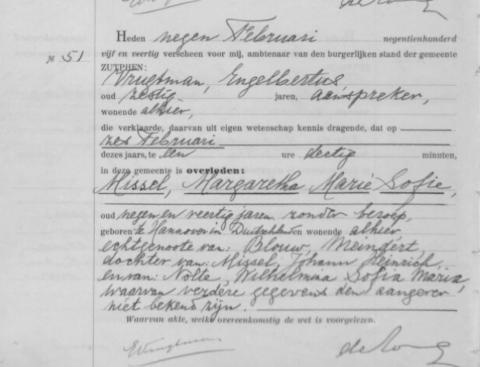 Heden negen Februari negentienhonderd
№ 51
vijf en veertig verscheen voor mij, ambtenaar van den burgerlijken stand der gemeente
ZUTPHEN:
Vrugtman, Engelbertus
oud zestig jaren, aanspreker,
wonende alhier,
die verklaarde, daarvan uit eigen wetenschap kennis dragende, dat op
zes Februari
dezes jaars, te een ure dertig minuten,
in deze gemeente is overleden:
Missel, Margaretha Marie Sofie,
oud negen en veertig jaren, zonder beroep,
geboren te Hannover in Duitschland en wonende alhier,
echtgenoote van: Blouw, Meindert,
dochter van: Missel, Johann Heinrich
en van: Nolte, Wilhelmina Sofia Maria,
waarvan verdere gegevens den aangever
niet bekend zijn.
Waarvan akte, welke overeenkomstig de wet is voorgelezen.
EVrugtman